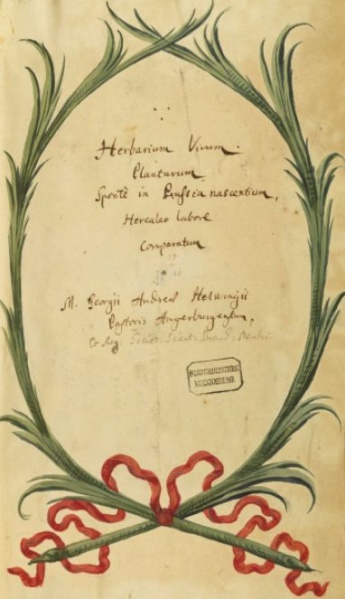 Herbarium Vivum.
Plantarum
Sponte in Prussia nascentium,
Herculeo labore
Comparatum
M. Georgii Andreæ Helwingii
Pastoris Angerburgensium,
& Reg. Societ. Scient.